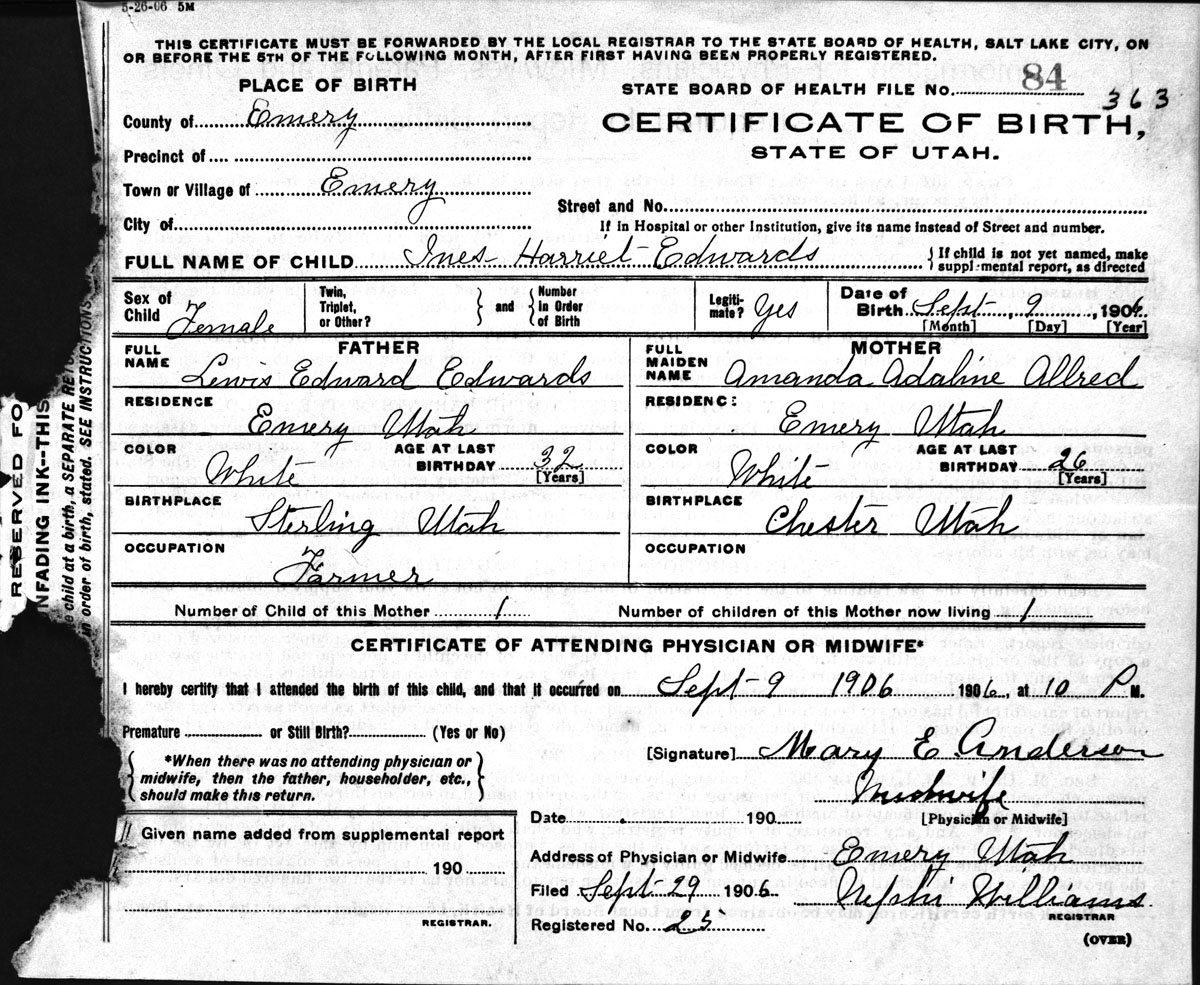 5-26-06 5M
THIS CERTIFICATE MUST BE FORWARDED BY THE LOCAL REGISTRAR TO THE STATE BOARD OF HEALTH, SALT LAKE CITY, ON
OR BEFORE THE 5TH OF THE FOLLOWING MONTH, AFTER FIRST HAVING BEEN PROPERLY REGISTERED.
PLACE OF BIRTH
STATE BOARD OF HEALTH FILE No. 84
363
County of Emery
CERTIFICATE OF BIRTH,
STATE OF UTAH.
Precinct of
Town or Village of Emery
Street and No.
City of
If in Hospital or other Institution, give its name instead of Street and number.
FULL NAME OF CHILD Ines Harriet Edwards { If child is not yet named, make
supplemental report, as directed
Sex of Child Female
Twin, Triplet, or Other? } and { Number in Order of Birth
Legiti-mate? Yes
Date of Birth Sept 9, 1906
[Month] [Day] [Year]
FATHER
FULL NAME Lewis Edward Edwards
RESIDENCE Emery Utah
COLOR White AGE AT LAST BIRTHDAY 32 [Years]
BIRTHPLACE Sterling Utah
OCCUPATION Farmer
MOTHER
FULL MAIDEN NAME Amanda Adaline Allred
RESIDENC: Emery Utah
COLOR White AGE AT LAST BIRTHDAY 26 [Years]
BIRTHPLACE Chester Utah
OCCUPATION
Number of Child of this Mother 1 Number of children of this Mother now living 1
CERTIFICATE OF ATTENDING PHYSICIAN OR MIDWIFE*
I hereby certify that I attended the birth of this child, and that it occurred on Sept-9 1906 1906, at 10 P M.
Premature or Still Birth? (Yes or No)
*When there was no attending physician or
midwife, then the father, householder, etc.,
should make this return.
[Signature] Mary E Anderson
Midwife
[Physician or Midwife]
Date 190
Given name added from supplemental report
190
REGISTRAR.
Address of Physician or Midwife Emery Utah
Filed Sept-29 1906 Nephi Williams
REGISTRAR
Registered No. 25
(OVER)
RESERVED FO
NFADING INK--THIS
e child at a birth, a SEPARATE RETU
n order of birth, stated. SEE INSTRUCTIONS